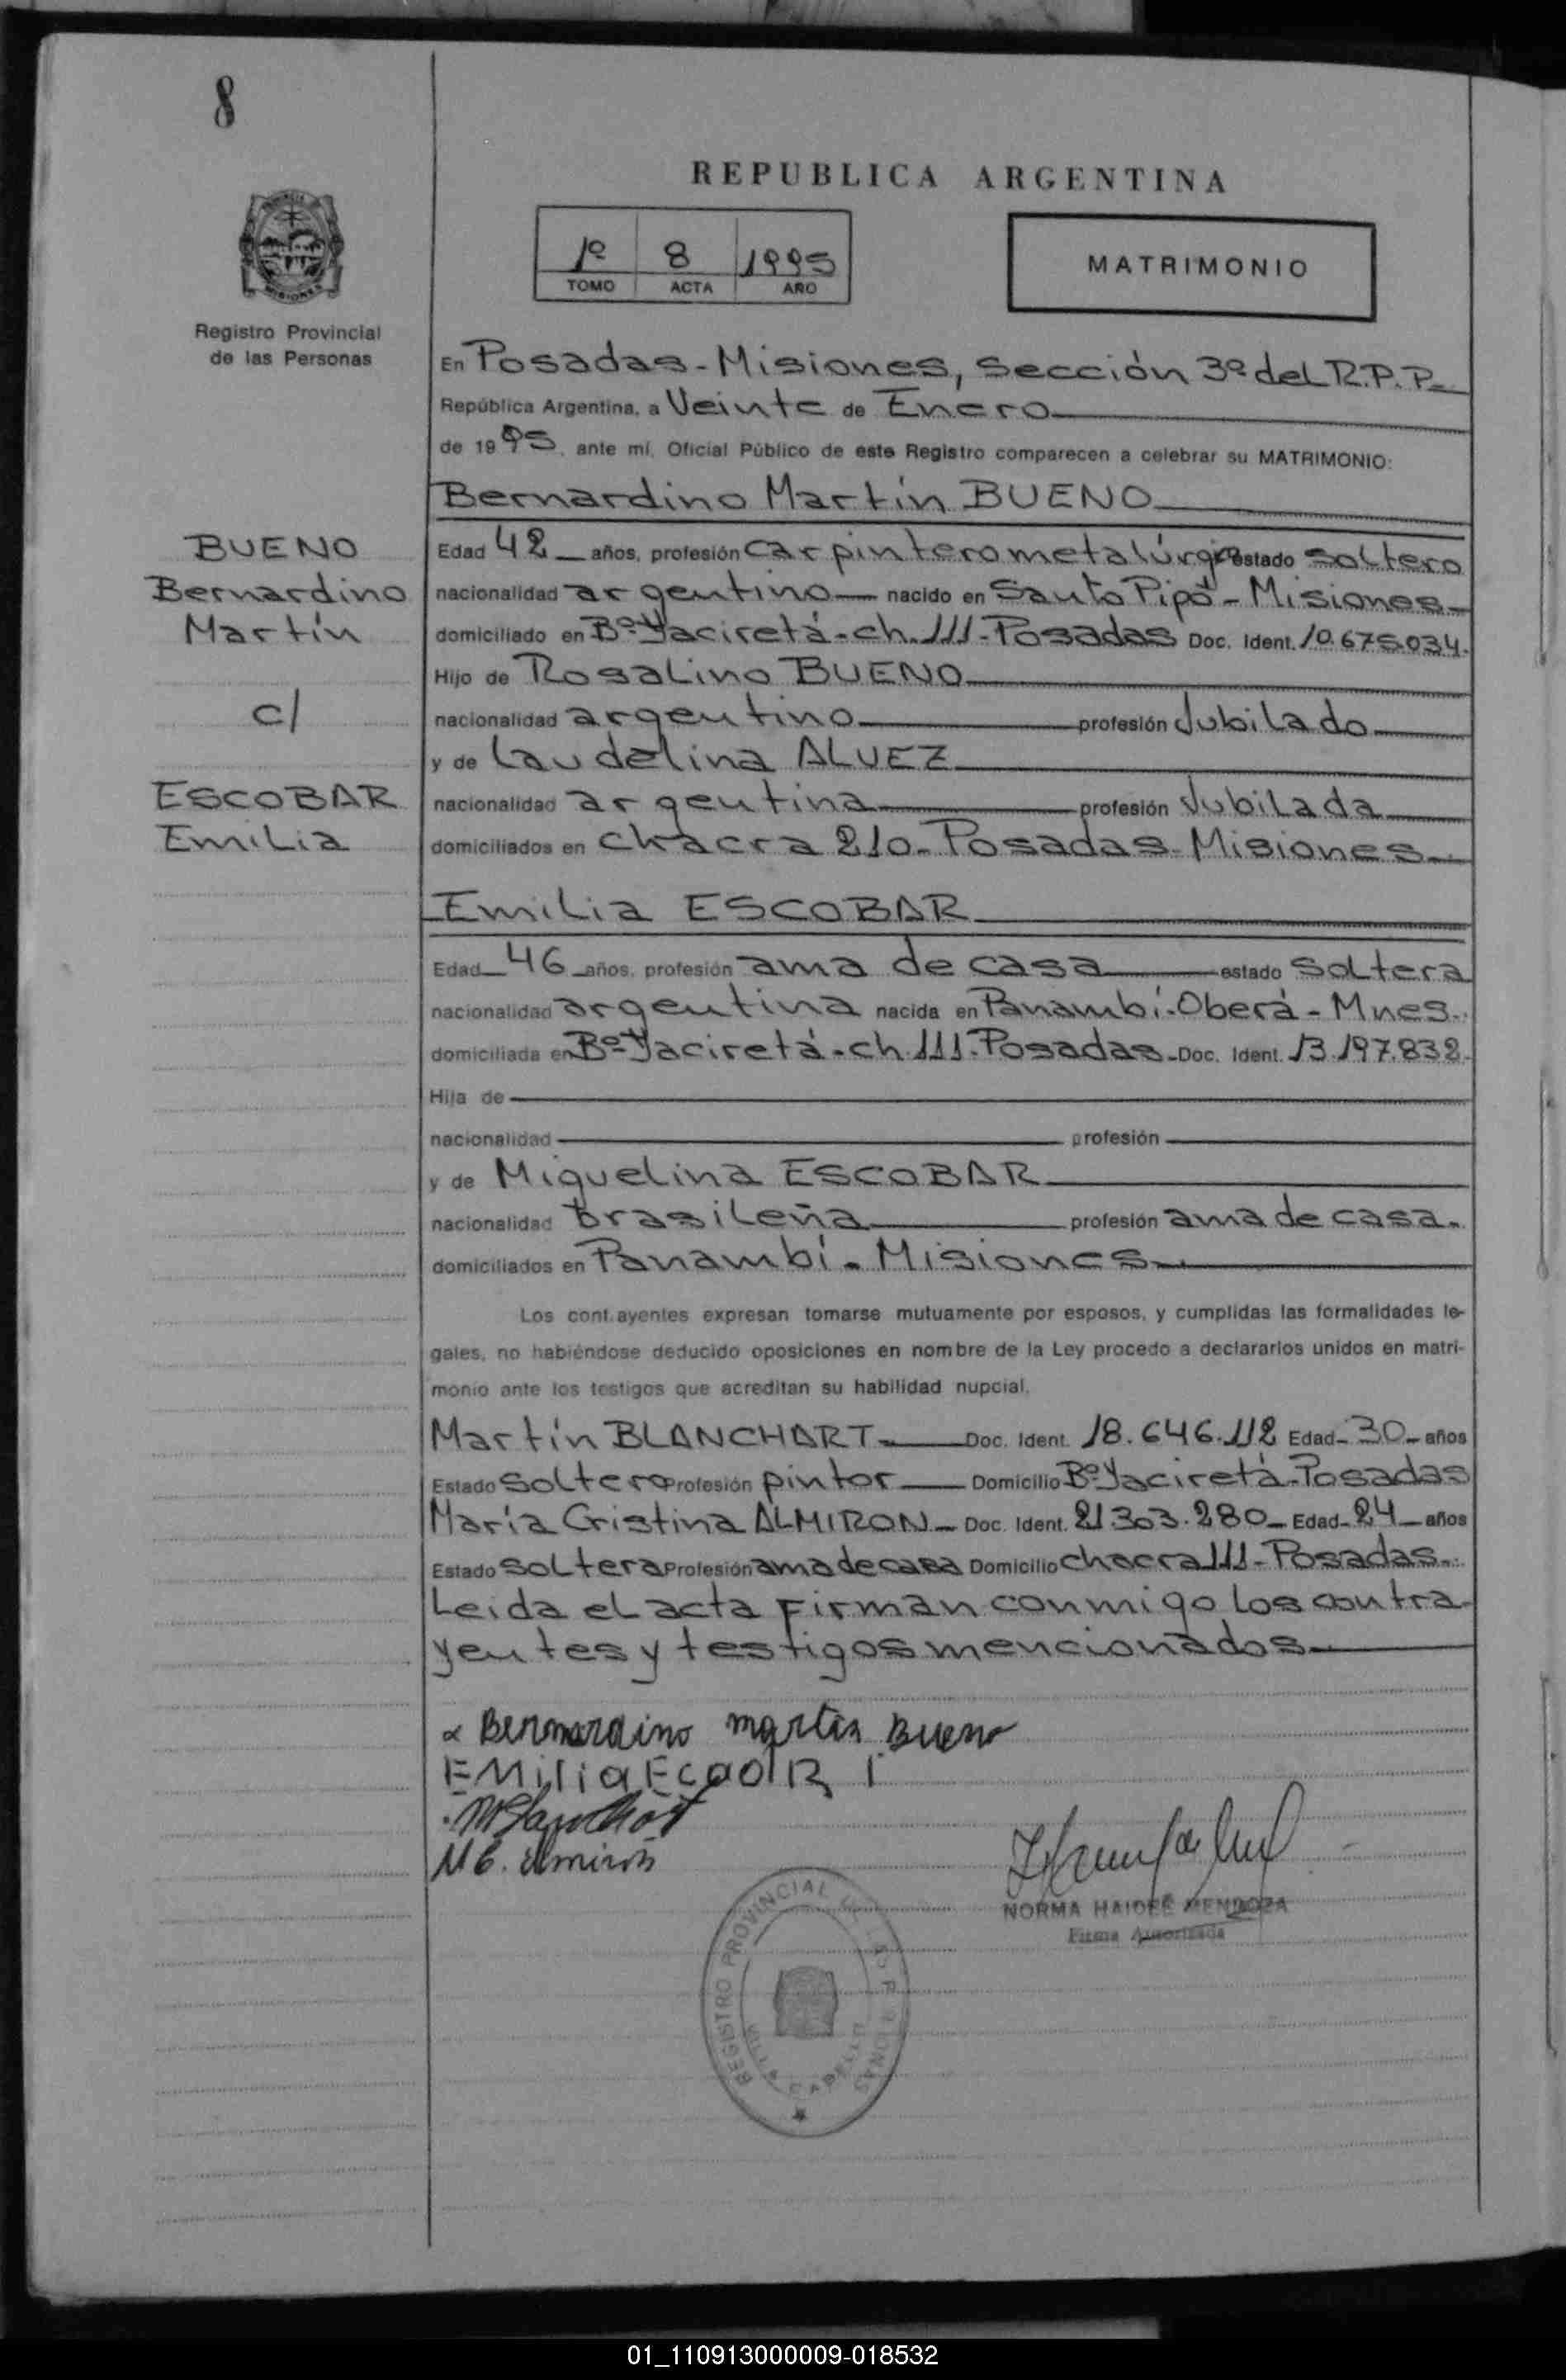 8
REPUBLICA ARGENTINA
1º 8 1995
TOMO ACTA AÑO
MATRIMONIO
Registro Provincial
de las Personas
En Posadas - Misiones, sección 3ª del R.P.P.
República Argentina, a Veinte de Enero
de 1995, ante mí, Oficial Público de este Registro comparecen a celebrar su MATRIMONIO:
Bernardino Martín BUENO
BUENO
Bernardino
Martín
c/
ESCOBAR
Emilia
Edad 42 años, profesión carpintero metalúrgico estado soltero
nacionalidad argentino nacido en Santo Pipó - Misiones
domiciliado en Bº Yaciretá - ch. 111 - Posadas Doc. Ident. 10.675.034.
Hijo de Rosalino BUENO
nacionalidad argentino profesión Jubilado
y de Laudelina ALVEZ
nacionalidad argentina profesión Jubilada
domiciliados en chacra 210 - Posadas - Misiones
Emilia ESCOBAR
Edad 46 años, profesión ama de casa estado soltera
nacionalidad argentina nacida en Panambí - Oberá - Mnes.
domiciliada en Bº Yaciretá - ch. 111 - Posadas - Doc. Ident. 13.197.832.
Hija de
nacionalidad profesión
y de Miguelina ESCOBAR
nacionalidad brasileña profesión ama de casa.
domiciliados en Panambí - Misiones
Los contrayentes expresan tomarse mutuamente por esposos, y cumplidas las formalidades le-
gales, no habiéndose deducido oposiciones en nombre de la Ley procedo a declararlos unidos en matri-
monio ante los testigos que acreditan su habilidad nupcial.
Martín BLANCHART Doc. Ident. 18.646.112 Edad 30 años
Estado soltero Profesión pintor Domicilio Bº Yaciretá - Posadas
María Cristina ALMIRON Doc. Ident. 21.303.280 Edad 24 años
Estado soltera Profesión ama de casa Domicilio chacra 111 - Posadas.
Leida el acta firman conmigo los contra-
yentes y testigos mencionados
Bernardino martin Bueno
EMilia
M C. almiron
NORMA HAIDEÉ MENDOZA
Firma Autorizada
REGISTRO PROVINCIAL DE LAS PERSONAS
01_110913000009-018532